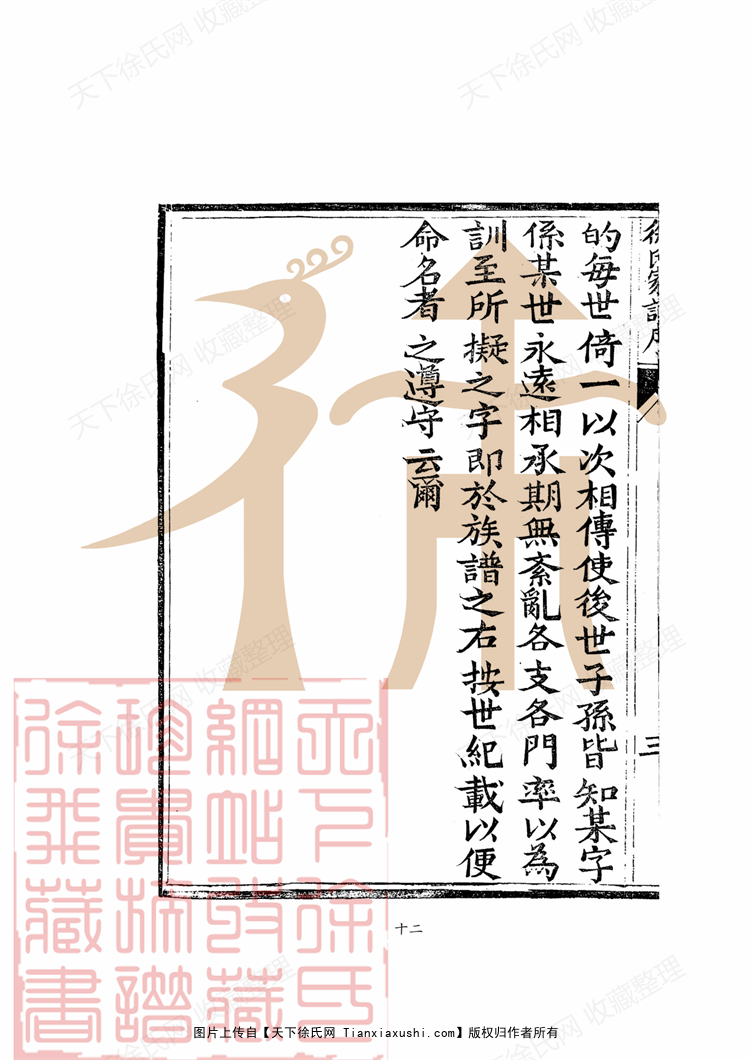 徐氏家譜序
三
的每世倚一以次相傳使後世子孫皆知某字
係某世永遠相承期無紊亂各支各門率以為
訓至所擬之字即於族譜之右按世紀載以便
命名者之遵守云爾
十二
天下徐氏
網站收藏
珍貴族譜
徐飛藏書
天下徐氏网 收藏整理
图片上传自【天下徐氏网 Tianxiaxushi.com】版权归作者所有